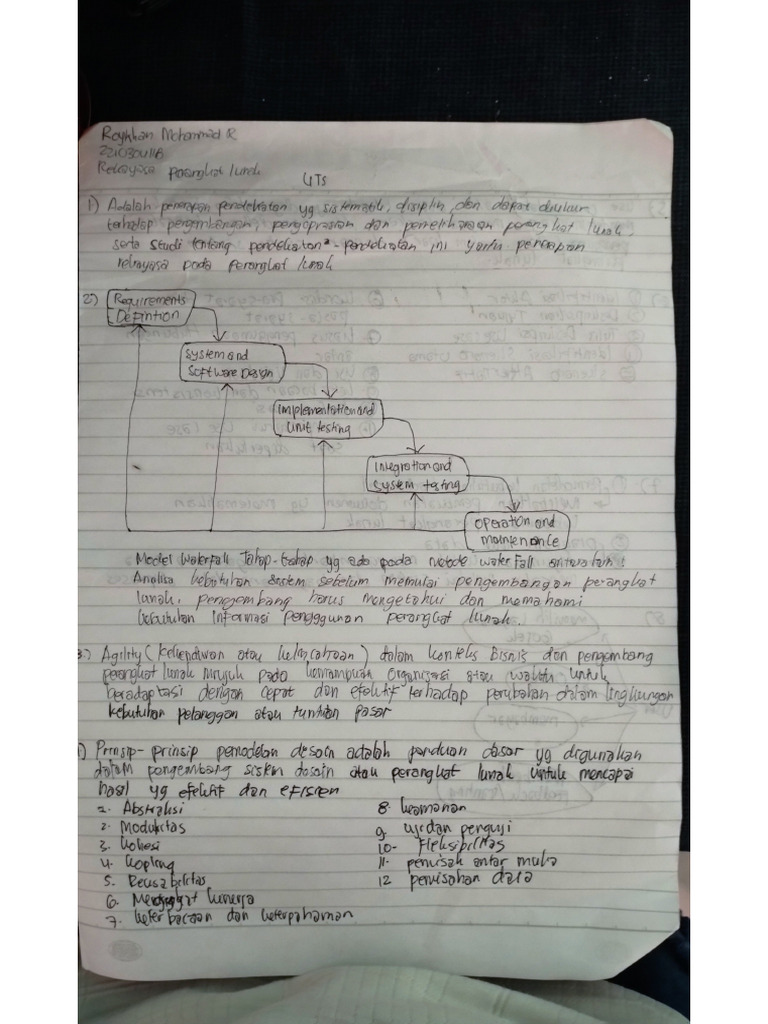 Roykhan Mohammad R
Rekayasa Perangkat lunak
UTS
1) Adalah penerapan pendekatan yg sistematis, disiplin dan dapat diukur
terhadap pengembangan, pengoprasian dan pemeliharaan perangkat lunak
serta studi tentang pendekatan²-pendekatan ini yaitu penerapan
rekayasa pada perangkat lunak
2) Requirements
Defintion
System and
Software Design
Implementation and
Unit testing
Integration and
system testing
Operation and
maintenance
Model waterfall Tahap-tahap yg ada pada metode water fall antara lain :
Analisa kebutuhan sistem sebelum memulai pengembangan perangkat
lunak, pengembang harus mengetahui dan memahami
kebutuhan informasi pengggunan perangkat lunak.
3.) Agility ( ) dalam konteks Bisnis dan pengembang
perangkat lunak pada kemampuan organisasi atau untuk
beradaptasi dengan cepat dan efektif terhadap perubahan dalam lingkungan
kebutuhan pelanggan atau pasar
) Prinsip-prinsip pemodelan desain adalah panduan dasar yg digunakan
dalam pengembang sistem desain atau perangkat lunak untuk mencapai
hasil yg efektif dan efisien
1. Abstraksi
2. Modulritas
3. Kohesi
4. Kopling
5. Reusabilitas
6. kinerja
7. keterbacaan dan keterpahaman
8. keamanan
9. uji dan penguji
10- Fleksibilitas
11- pemisah antar muka
12 pemisahan data